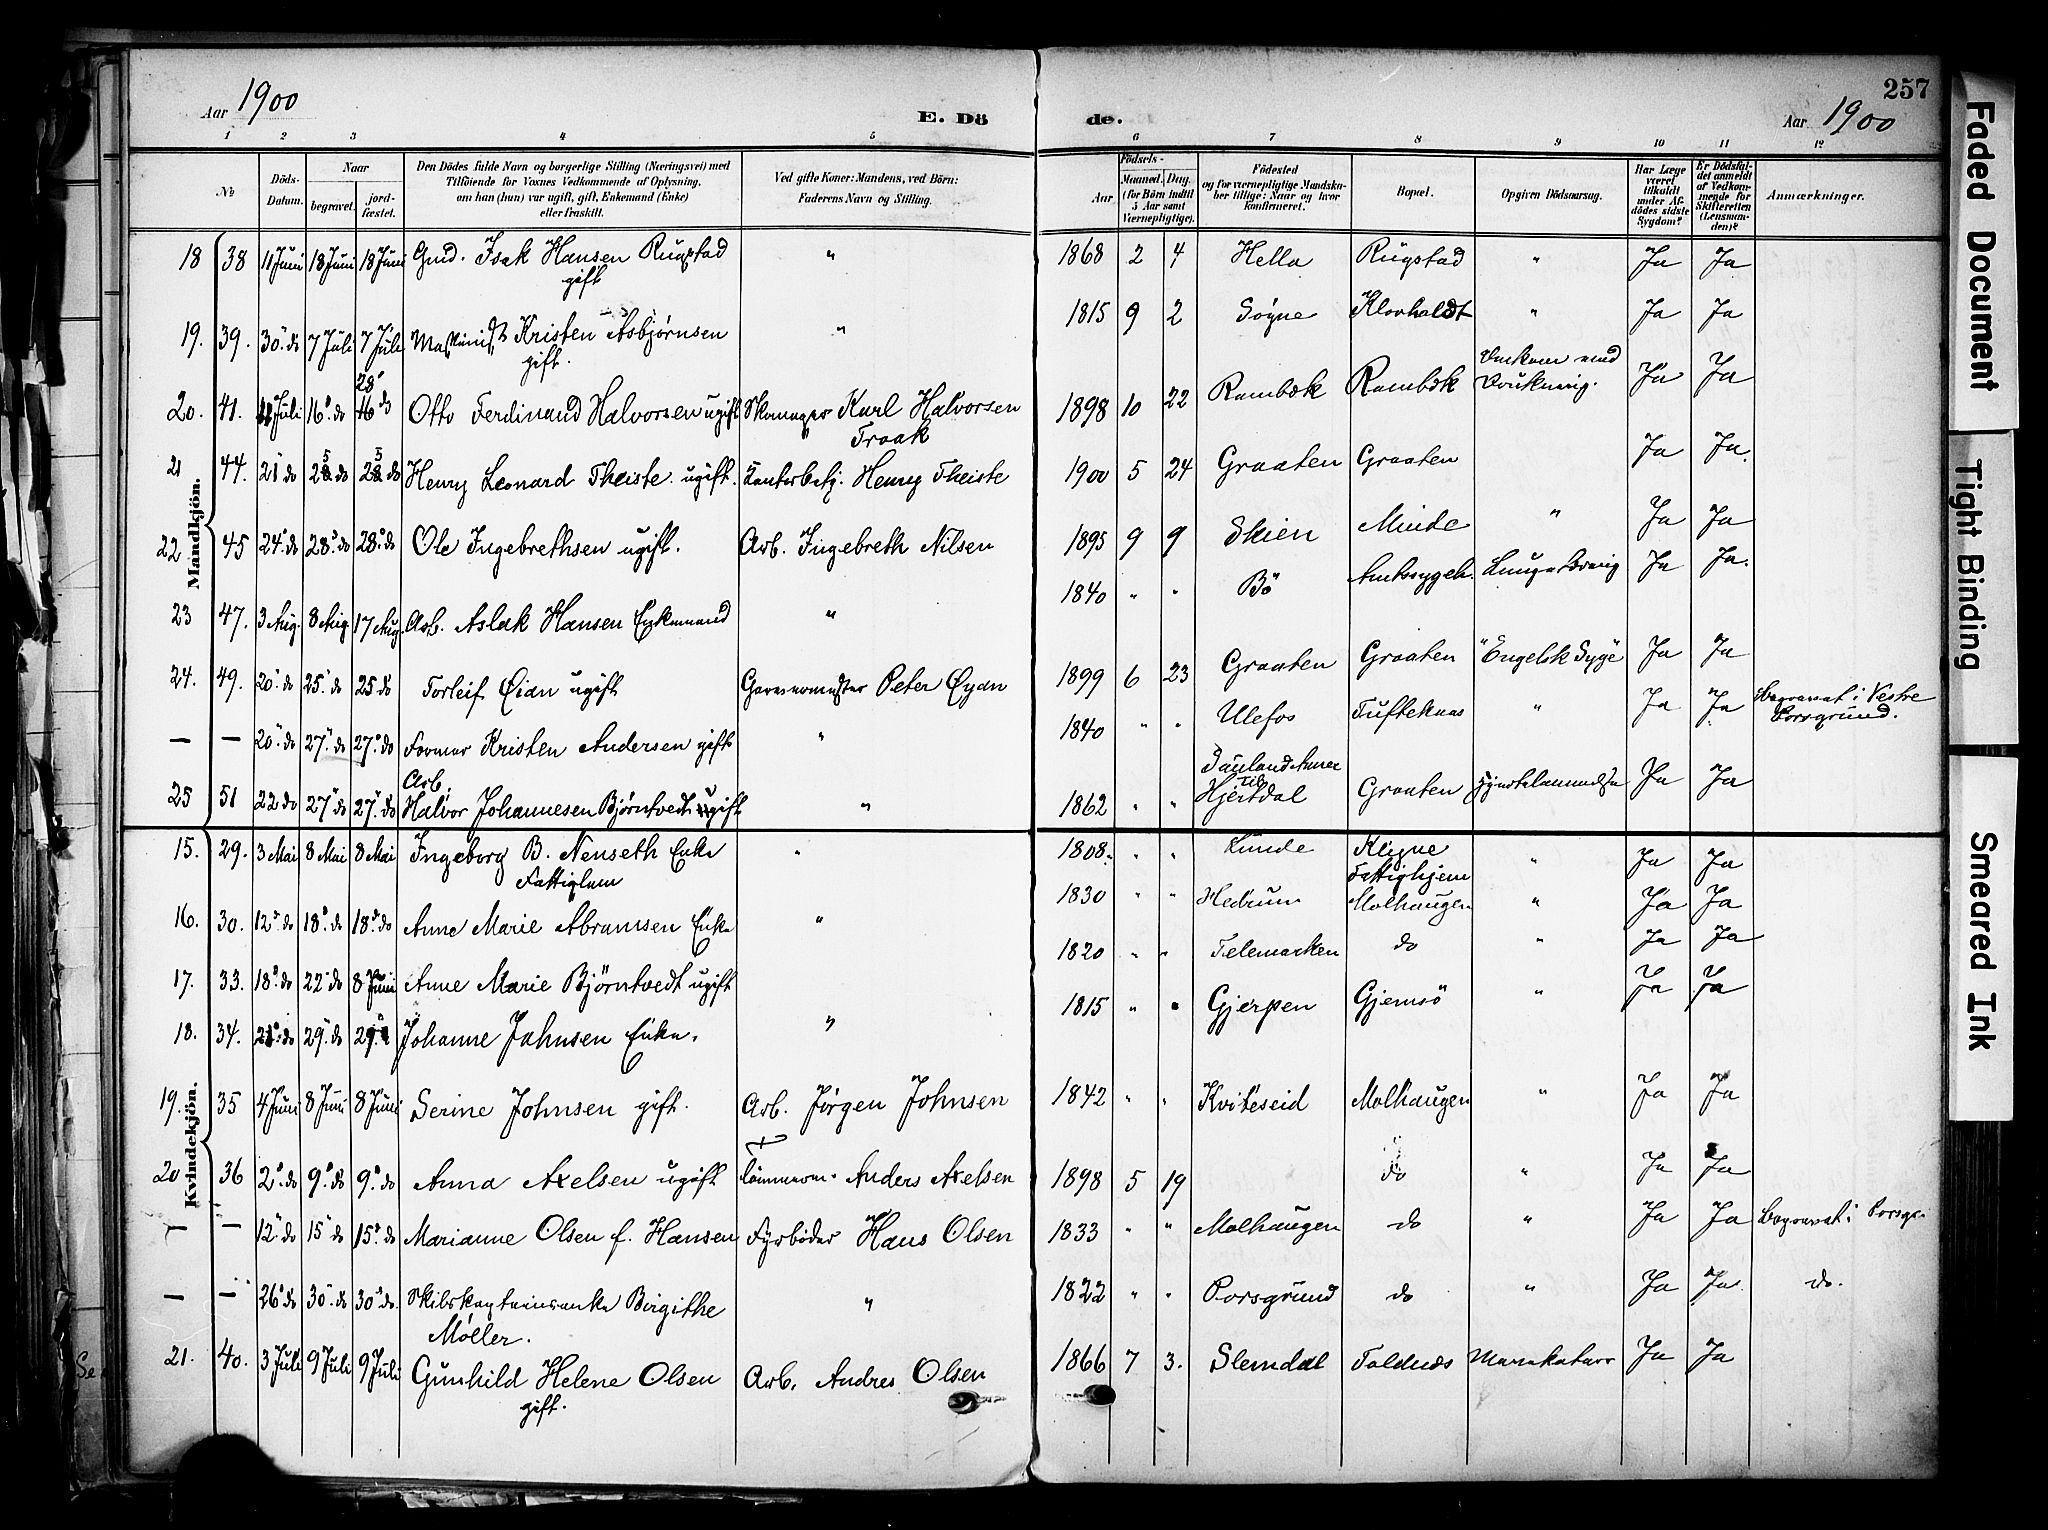 257
Aar 1900
E. Dö
de.
Aar 1900
1 2 3 4 5 6 7 8 9 10 11 12
No
Döds-Datum.
Naar
begravet.
jord-fæstet.
Den Dödes fulde Navn og borgerlige Stilling (Næringsvei) med
Tilföiende for Voxnes Vedkommende af Oplysning,
om han (hun) var ugift, gift, Enkemand (Enke)
eller fraskilt.
Ved gifte Koner: Mandens, ved Börn:
Faderens Navn og Stilling.
Aar
Födsels-
Maaned. Dag.
(for Börn indtil
5 Aar samt
Værnepligtige).
Födested
og for værnepligtige Mandska-
ber tillige: Naar og hvor
konfirmeret.
Bopæl.
Opgiven Dödsaarsag.
Har Læge
været
tilkaldt
under Af-
dödes sidste
Sygdom?
Er Dödsfal-
det anmeldt
af Vedkom-
mende for
Skifteretten
(Lensman-
den)?
Anmærkninger.
Mandkjön.
18 38 11 Juni 18 Juni 18 Juni Gmd. Isak Hansen Rugstad gift " 1868 2 4 Hella Rugstad " Ja Ja
19. 39. 30. do 7 Juli 7 Juli Maskinist Kristen Asbjørnsen gift. " 1815 9 2 Søgne Klovholdt " Ja Ja
20. 41. 11 Juli 16. do 28 16 do Otto Ferdinand Halvorsen ugift Skomager Karl Halvorsen Traak 1898 10 22 Rambæk Rambæk Ja Ja
21 44. 21 do 25 do 25 do Henry Leonard Theiste ugift. Kontorbetj. Henry Theiste 1900 5 24 Graaten Graaten Ja Ja.
22 45 24. do 28. do 28. do Ole Ingebrethsen ugift. Arb. Ingebreth Nilsen 1895 9 9 Skien Minde " Ja Ja
23 47. 3 Aug. 8 Aug 17 Aug. Arb. Aslak Hansen Enkemand " 1840 " " Bö Amtssygeh. Ja Ja.
24. 49. 20. do 25. do 25 do Torleif Eian ugift Garvermester Peter Eyan 1899 6 23 Graaten Graaten "Engelsk Syge" Ja Ja
— — 20. do 27. do 27. do Formar Kristen Andersen gift " 1840 " " Ulefos Tufteknas " Ja Ja Begravet i Vestre Porsgrund.
25 51 22 do 27. do 27. do Arb. Halvor Johannesen Björntvedt ugift " 1862 " " Hjertdal Graaten Ja Ja
Kvindekjön.
15. 29. 3 Mai 8 Mai 8 Mai Ingeborg B. Nenseth Enke Fattiglem " 1808. " " Lunde Klyne Fattighjem " Ja Ja
16. 30. 12. do 18. do 18. do Anne Marie Abramsen Enke " 1830 " " Hedrum Molhaugen " Ja Ja
17. 33. 18. do 22 do 8 Juni Anne Marie Björntvedt ugift 1820 " " Telemarken do " Ja Ja
18. 34. 21. do 29. do 29. Johanne Jahnsen Enke. " 1815 " " Gjerpen Gjemsö " Ja Ja
19. 35 4 Juni 8 Juni 8 Juni Serine Johnsen gift. Arb. Jørgen Johnsen 1842 " " Kviteseid Molhaugen " Ja Ja
20 36 2. do 9. do 9. do Anna Axelsen ugift Tømmerm. Anders Axelsen 1898 5 19 do " Ja Ja
— — 12. do 15 do 15. do Marianne Olsen f. Hansen Fyrbøder Hans Olsen 1833 " " Molhaugen do " Ja Ja Begravet i Porsgr.
— — 26. do 30. do 30. do. Skibskapteinsenke Birgithe Møller. " 1822 " " Porsgrund do " Ja Ja do.
21. 40. 3 Juli 9 Juli 9 Juli Gunhild Helene Olsen gift. Arb. Andres Olsen 1866 7 3. Slemdal Toldnæs Ja Ja
Faded Document
Tight Binding
Smeared Ink